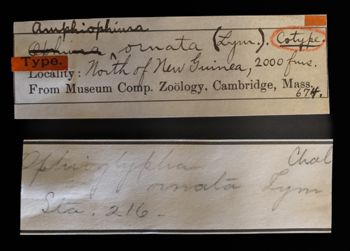 Amphiophiura
Ophiura ornata (Lym.). Cotype.
Type.
Locality: North of New Guinea, 2000 fms.
From Museum Comp. Zoölogy, Cambridge, Mass.
674.
Ophioglypha Chal
ornata Lym
Sta. 216.